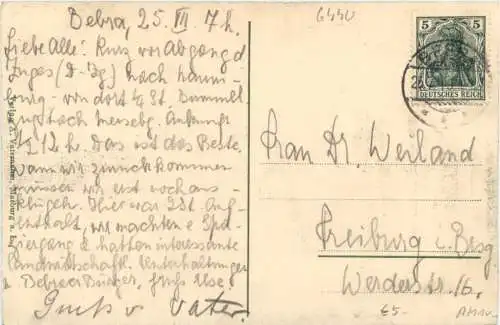 Bebra, 25. III. 7 h.
Liebe Alle! Kurz vor Abgang d
Zuges (D-Zg) nach Naum-
burg - von dort ½ St. Bummel
zug nach Merseбg. Ankunft
½ 12 h. Das ist das Beste.
Wann wir zurückkommen
müssen wir erst noch aus-
klügeln. Hier war 2 St. Auf-
enthalt, wir machten e Spa-
ziergang & hatten interessante
landwirtschaftl. Unterhaltungen
Bebraer Bürger, Gruß Else.
Gruß v Vater.
6440
5 5
DEUTSCHES REICH
Frau Dr. Weiland
Freiburg i. Brsg.
Werderstr. 16.
€5-